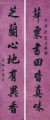 菽粟書田皆真味
芝蘭心地有異香